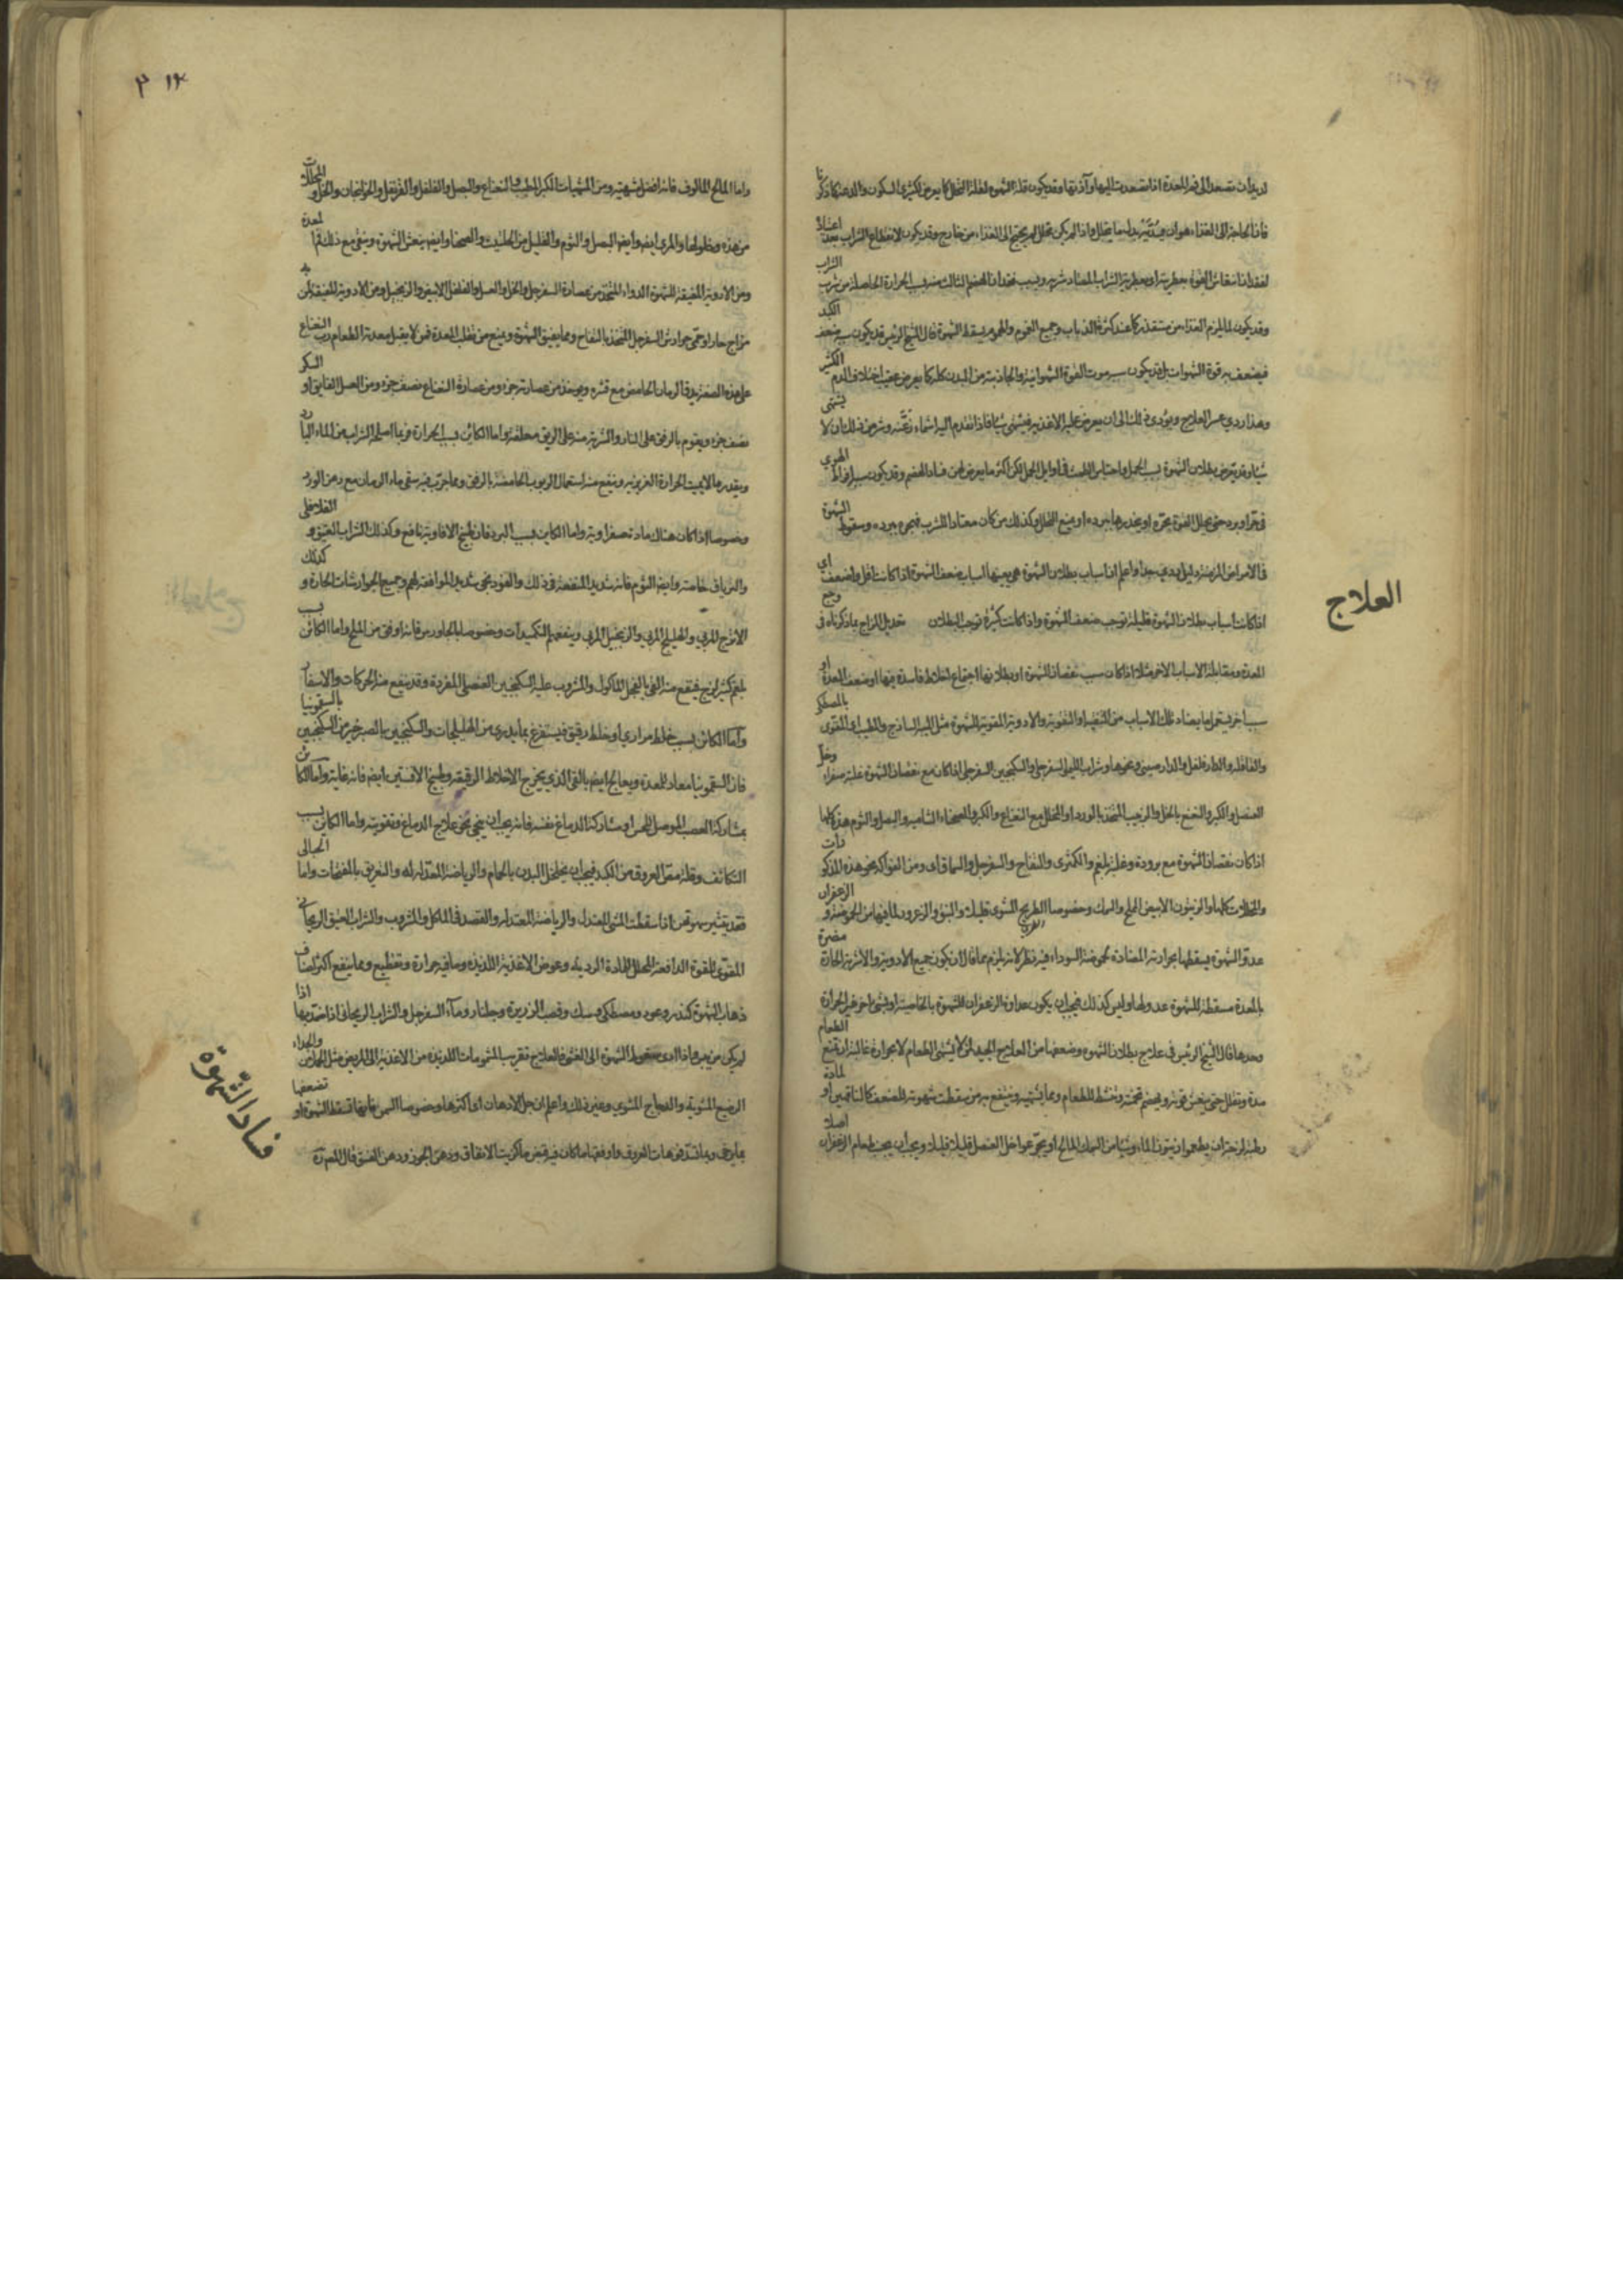 لديدان تصعد الى فم المعدة اذا تصعدت اليها وآذتها وقد يكون قلة الشهوة لقلة التحلل كما يعرض لكثيرى السكون والدعة كما ذكرنا
فان الحاجة الى الغذاء هو ان يصير بدل ما يتحلل واذا لم يكن تحلل لم يحتج الى الغذاء من خارج وقد يكون لانقطاع الشراب بعد اعتياد
لفقدان انتعاش القوة بعطريته او بعطرية الشراب المعتاد شربه وبسبب فقدان الهضم التالف بسبب الحرارة الحاصلة من شرب الشراب
وقد يكون لما يلزم الغذاء من مستقذر كما عند كثرة الذباب وجميع الغموم والهموم يسقط الشهوة قال الشيخ الرئيس قد يكون سببه ضعف الكبد
فيضعف به قوة الشهوات بل قد يكون سببه موت القوة الشهوانية والجاذبة من البدن كله كما يعرض عقيب اختلاف الدم الكثير
وهذا ردي عسر العلاج ويؤدى ذلك الى ان يعرض عليه الاغذية فيشتهى شيئا فاذا تقدم اليه اشمأز عنه وشر من ذلك ان لا يشتهى
شيئا وقد يعرض بطلان الشهوة بسبب الحمل واحتباس الطمث فى اوايل الحمل لكن اكثر ما يعرض لهن فساد الهضم وقد يكون سببه افراط الهوى
فى حر او برد حتى يحلل القوة بحره او يخدرها ببرده او يمنع التحلل وكذلك من كان معتادا للشرب فهجره ببرده وسقوط الشهوة
فى الامراض المزمنة دليل ردي جدا واعلم ان اسباب بطلان الشهوة هى بعينها اسباب ضعف الشهوة اذا كانت اقل واضعف اى
اذا كانت اسباب بطلان الشهوة قليلة توجب ضعف الشهوة واذا كانت كثيرة توجب البطلان تعديل المزاج بما ذكرناه فى وجع
العلاج
المعدة ومقابلة الاسباب الاخر مثلا اذا كان سبب نقصان الشهوة او بطلانها اجتماع اخلاط فاسدة فيها او ضعف المعدة او
سببا اخر يستعمل ما يضاد تلك الاسباب من التنقية او التقوية والادوية المقوية للشهوة مثل الميبه الساذج والمطيب اى المقوى بالمصطكى
والقاقلة والدار فلفل والدارصينى ونحوها وشراب الليمو السفرجلى والسكنجبين السفرجلى اذا كان مع نقصان الشهوة غلبة صفراء وخل
العنصل والكبر والنعنع بالخل والزبيب المتخذ بالورد او المخلل مع النعناع والكبر والصحناء الشامية والبصل والثوم هذه كلها
اذا كان نقصان الشهوة مع برودة وغلبة بلغم والكمثرى والتفاح والسفرجل والسماق اى ومن الفواكه نحو هذه المذكورات
والمخللات كلها والزيتون الابيض المملح والسمك وخصوصا الطريخ المشوى قليلا والنبق والزعرور لما فيها من الحموضة والزعفران
عدو الشهوة يسقطها بحرارته المضادة لحموضة السوداء فيه نظر لانه يلزم مما قال ان يكون جميع الادوية والاشربة الحارة مضرة
بالمعدة مسقطة للشهوة عدوا لها وليس كذلك فيجب ان يكون عداوة الزعفران للشهوة بالخاصية او بشى اخر غير الحرارة
وحدها قال الشيخ الرئيس فى علاج بطلان الشهوة وضعفها من العلاج الجيد لمن لا يشتهى الطعام لا لحرارة غالبة ان يمنع الطعام
مدة ويقلل حتى ينعش قوته ويهضم تخمته وينشط للطعام ومما يشهيه وينتفع به من سقطت شهوته للضعف كالناقهين او لمادة
رطبة لزجة ان يطعموا زيتون الماء وشيئا من السمك المالح او يجرعوا خل العنصل قليلا قليلا ويجب ان يجنب طعام الزعفران اصلا
٣١٢
واما المالح المالوف فانه افضل شهية ومن المشهيات الكبر المطيب والنعناع والبصل والفلفل والقرنفل والخولنجان والخل والمخللات
من هذه وخلولها والمرى ايضا وايضا البصل والثوم والقليل من الحلتيت والصحنا وايضا ينعش الشهوة وينقى مع ذلك فم المعدة
ومن الادوية المفيقة للشهوة الدواء المتخذ من عصارة السفرجل والخل والعسل والفلفل الابيض والزنجبيل ومن الادوية المفيقة لمن به
مزاج حار او حمى جوارش السفرجل المتخذ بالتفاح ومما يفيق الشهوة ويمنع من تقلب المعدة فمن لا يقبل معدته الطعام رب النعناع
على هذه الصفة يدق الرمان الحامض مع قشره ويوخذ من عصارته جزء ومن عصارة النعناع نصف جزء ومن العسل الفايق او السكر
نصف جزء ويقوم بالرفق على النار والشربة منه على الريق ملعقة واما الكائن بسبب الحرارة فربما اصلحه الشراب من الماء البارد
وبقدر ما لا يميت الحرارة الغريزية وينفع منه استعمال الربوب الحامضة بالرفق ومما جرب فيه سقى ماء الرمان مع دهن الورد
وخصوصا اذا كان هناك مادة صفراوية واما الكاين بسبب البرد فان طبيخ الافاويه نافع وكذلك الشراب العتيق والفلافلى
والترياق خاصة وايضا الثوم فانه شديد المنفعة فى ذلك والفودنجى شديد الموافقة لهم وجميع الجوارشات الحارة وكذلك
الاترج المربى والهليلج المربى والزنجبيل المربى وينفعهم التكميدات وخصوصا بالجاورس فانه اوفق من الملح واما الكائن بسبب
بلغم كثير لزج فينفع منه القى بالفجل الماكول والمشروب عليه السكنجبين العنصلى المفردة وقد ينفع منه الحركات والاسفار
واما الكائن بسبب خلط مرارى او خلط رقيق فيستفرغ بما يدرى من الهليلجات والسكنجبين بالصبر خير من السكنجبين بالسقمونيا
فان السقمونيا معاد للمعدة ويعالج ايضا بالقى الذى يخرج الاخلاط الرقيقة وطبيخ الافسنتين ايضا فانه غاية واما الكائن
بمشاركة العصب الموصل للحس او مشاركة الدماغ نفسه فانه يجب ان ينحى نحو علاج الدماغ وتقويته واما الكاين بسبب
التكاثف وقلة مص العروق من الكبد فيجب ان يخلخل البدن بالحمام والرياضة المعتدلة والتعريق بالمفتحات واما الحبالى
فقد يثير شهوتهن اذا سقطت المشى المعتدل والرياضة المعتدلة والقصد فى الماكل والمشروب والشراب العتيق الريحانى
المقوى للقوة الدافعة المحلل للمادة الردية وعرض الاغذية اللذيذة وما فيه حرارة وتقطيع ومما ينفع اكثر اصناف
ذهاب الشهوة كندر وعود ومصطكى وسك وقصب الذريرة وجلنار وماء السفرجل والشراب الريحانى اذا ضمد بها اذا
لم يكن من يبس واذا ادى سقوط الشهوة الى الغشى فالعلاج تقريب المشمومات اللذيذة من الاغذية الى المريض مثل الحملان والجداء
الرضع المشوية والدجاج المشوى وغير ذلك واعلم ان جل الادهان اى اكثرها وخصوصا السمن فانها تسقط الشهوة او تضعفها
بما يرخى وبما يسد فوهات العروق واوفقها ما كان فيه قبض ما كزيت الانفاق ودهن الجوز ودهن الفستق قال
فساد الشهوة